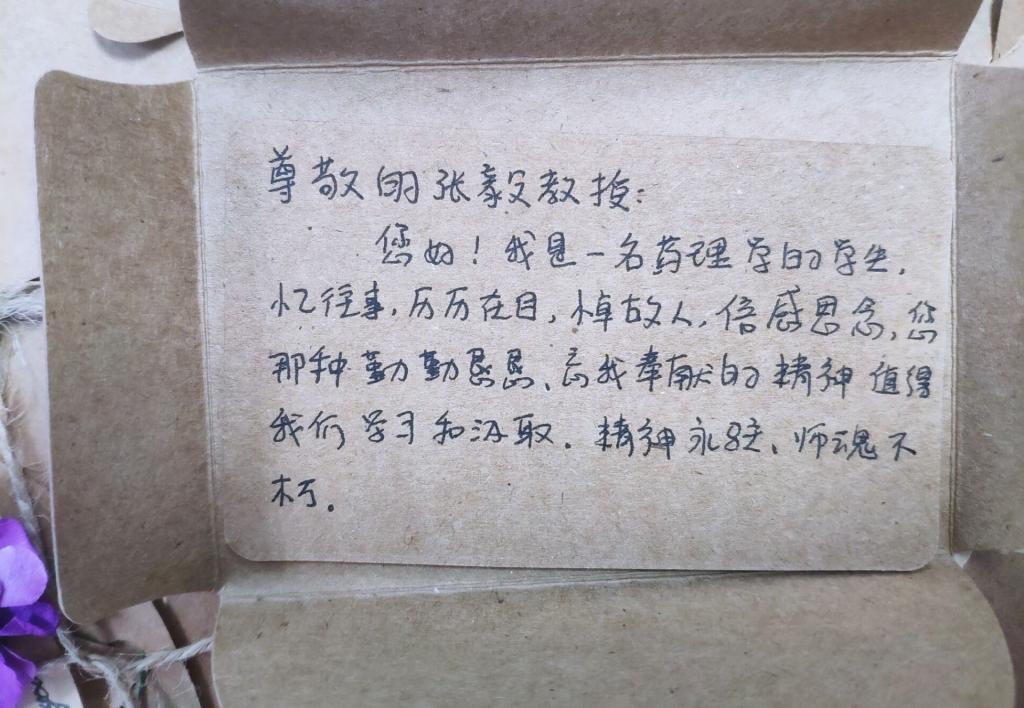 尊敬的张毅教授：
您好！我是一名药理学的学生，
忆往事，历历在目，悼故人，倍感思念，您
那种勤勤恳恳、忘我奉献的精神值得
我们学习和汲取。精神永驻、师魂不
朽。